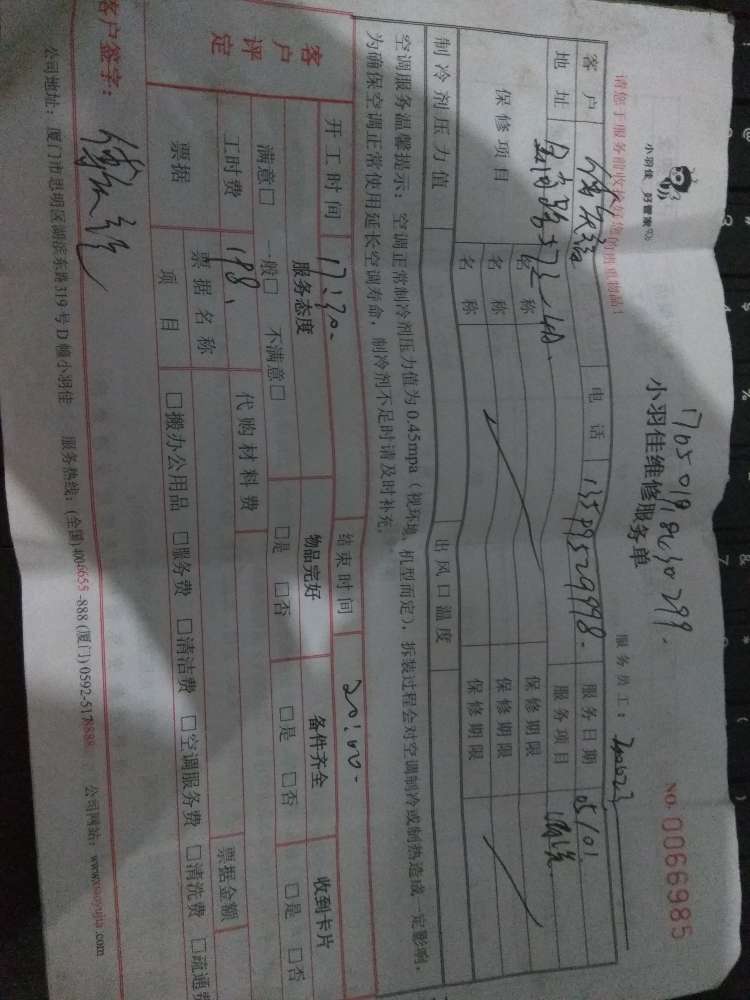 小羽佳 好管家
请您于服务前收检好您的贵重物品!
小羽佳维修服务单
服务员工:
NO. 0066985
客户 电话 服务日期 05/01
地址 服务项目
保修项目 名称 保修期限
名称 保修期限
名称 保修期限
制冷剂压力值 出风口温度
空调服务温馨提示:空调正常制冷剂压力值为0.45mpa(视环境、机型而定),拆装过程会对空调制冷或制热造成一定影响,
为确保空调正常使用延长空调寿命,制冷剂不足时请及时补充。
开工时间 17:30. 结束时间 20:00.
客户评定 服务态度 物品完好 备件齐全 收到卡片
满意□ 一般□ 不满意□ □是 □否 □是 □否 □是 □否
工时费 198. 代购材料费 票据金额
票据 票据名称
项目 □搬办公用品 □服务费 □清洁费 □空调服务费 □清洗费 □疏通费
客户签字:
公司地址:厦门市思明区湖滨东路319号D幢小羽佳 服务热线:(全国)4006655-888 (厦门)0592-5178888 公司网站: